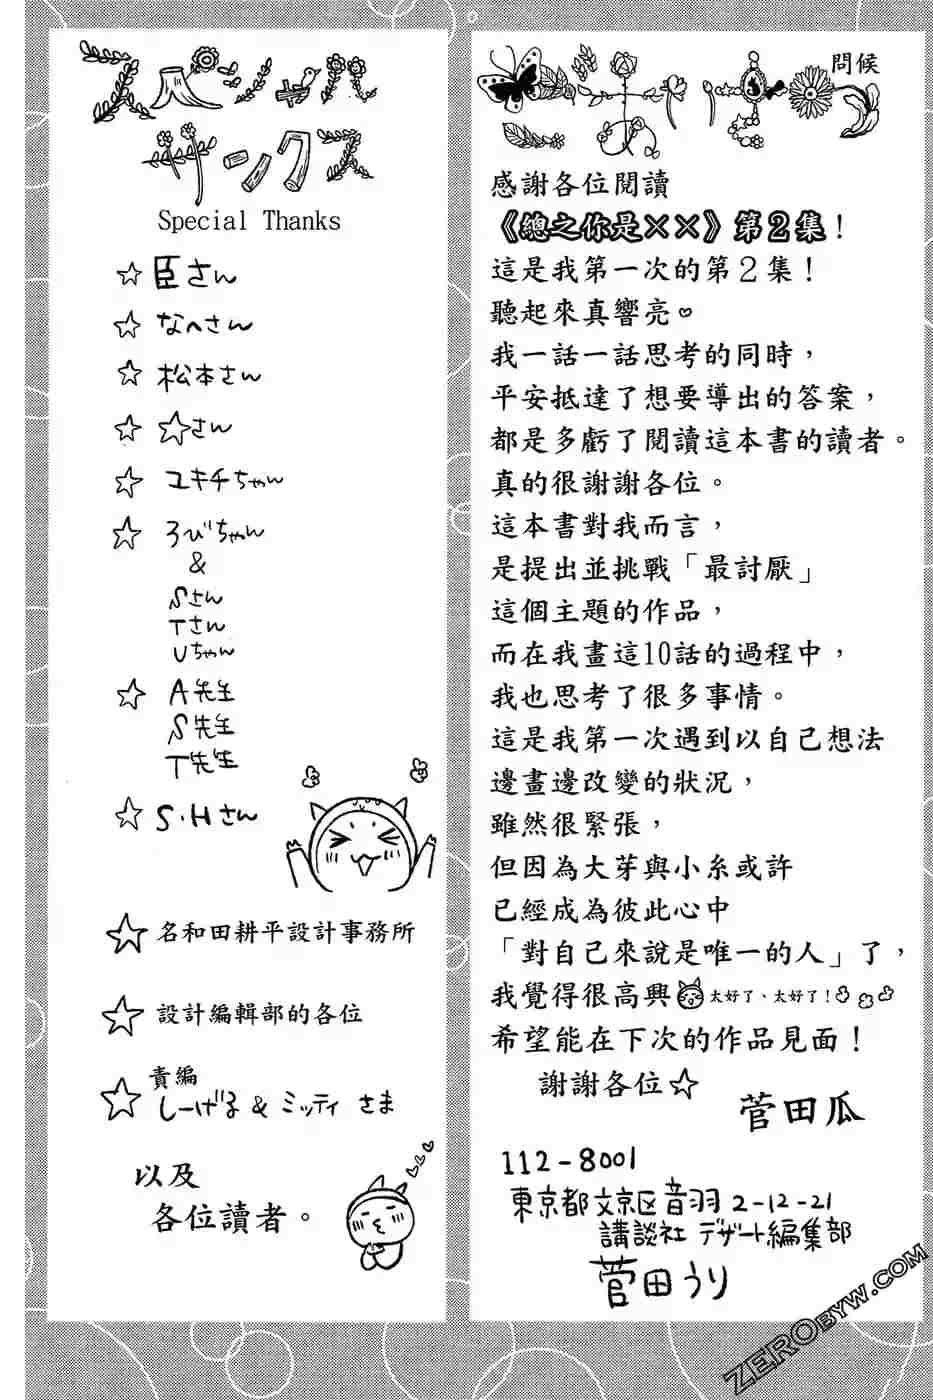 スペシャル
サンクス
Special Thanks
☆ 臣さん
☆ なへさん
☆ 松本さん
☆ ☆さん
☆ ユキチちゃん
☆ ろびちゃん
&
Sさん
Tさん
Uちゃん
☆ A先生
S先生
T先生
☆ S・Hさん
☆ 名和田耕平設計事務所
☆ 設計編輯部的各位
責編
☆ しーげる & ミッティ さま
以及
各位讀者。
問候
感謝各位閱讀
《總之你是××》第2集!
這是我第一次的第2集!
聽起來真響亮♡
我一話一話思考的同時,
平安抵達了想要導出的答案,
都是多虧了閱讀這本書的讀者。
真的很謝謝各位。
這本書對我而言,
是提出並挑戰「最討厭」
這個主題的作品,
而在我畫這10話的過程中,
我也思考了很多事情。
這是我第一次遇到以自己想法
邊畫邊改變的狀況,
雖然很緊張,
但因為大芽與小糸或許
已經成為彼此心中
「對自己來說是唯一的人」了,
我覺得很高興 太好了、太好了!
希望能在下次的作品見面!
謝謝各位☆
菅田瓜
112-8001
東京都文京区音羽2-12-21
講談社 デザート編集部
菅田うり
ZEROBYW.COM